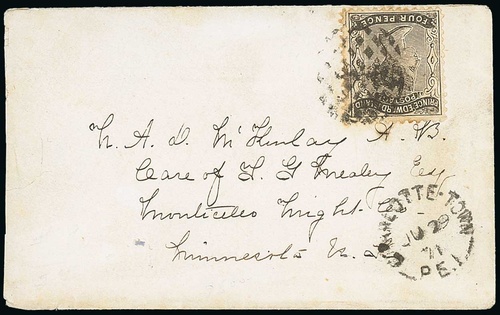 FOUR PENCE
PRINCE EDWARD ISLAND
POSTAGE
N. A. D. McKinlay A. B.
Care of T. G. Mealey Esq
Monticello Wright Co
Minnesota U.S.
CHARLOTTE-TOWN
JU 29
71
P.E.I